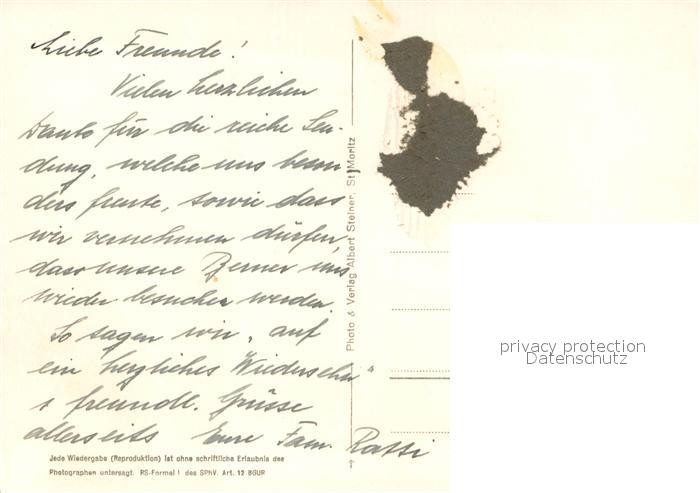 Liebe Freunde!
Vielen herzlichen
Dank für die reiche Sen-
dung, welche uns beson-
ders freute, sowie dass
wir vernehmen dürfen,
dass unsere Berner uns
wieder besuchen werden.
So sagen wir „auf
ein herzliches Wiedersehn"
& freundl. Grüsse
allerseits Eure Fam. Ratti
Photo & Verlag Albert Steiner, St. Moritz
privacy protection
Datenschutz
Jede Wiedergabe (Reproduktion) ist ohne schriftliche Erlaubnis des
Photographen untersagt. RS-Formel I des SPhV. Art. 12 BGUR